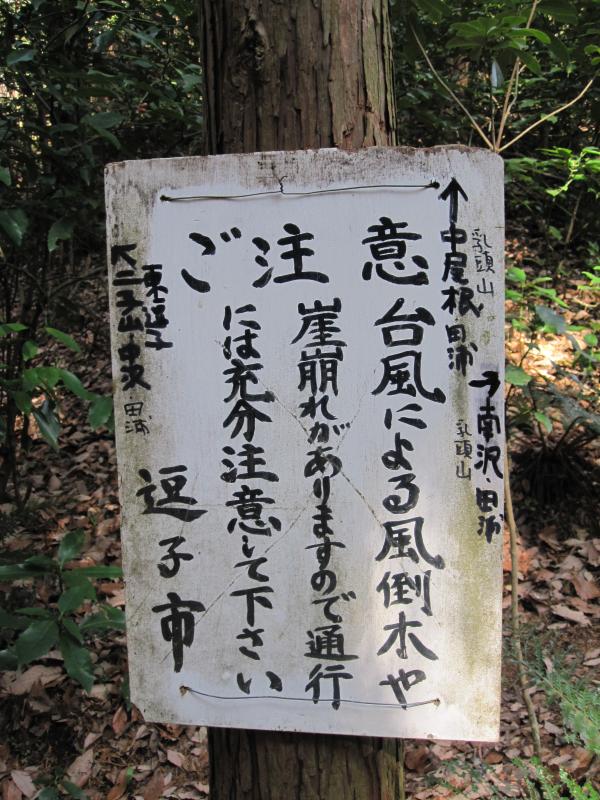 ご注意
台風による風倒木や
崖崩れがありますので通行
には充分注意して下さい
逗子市
↑中尾根・田浦
乳頭山
→南沢・田浦
乳頭山
東逗子
二子山
中沢
田浦